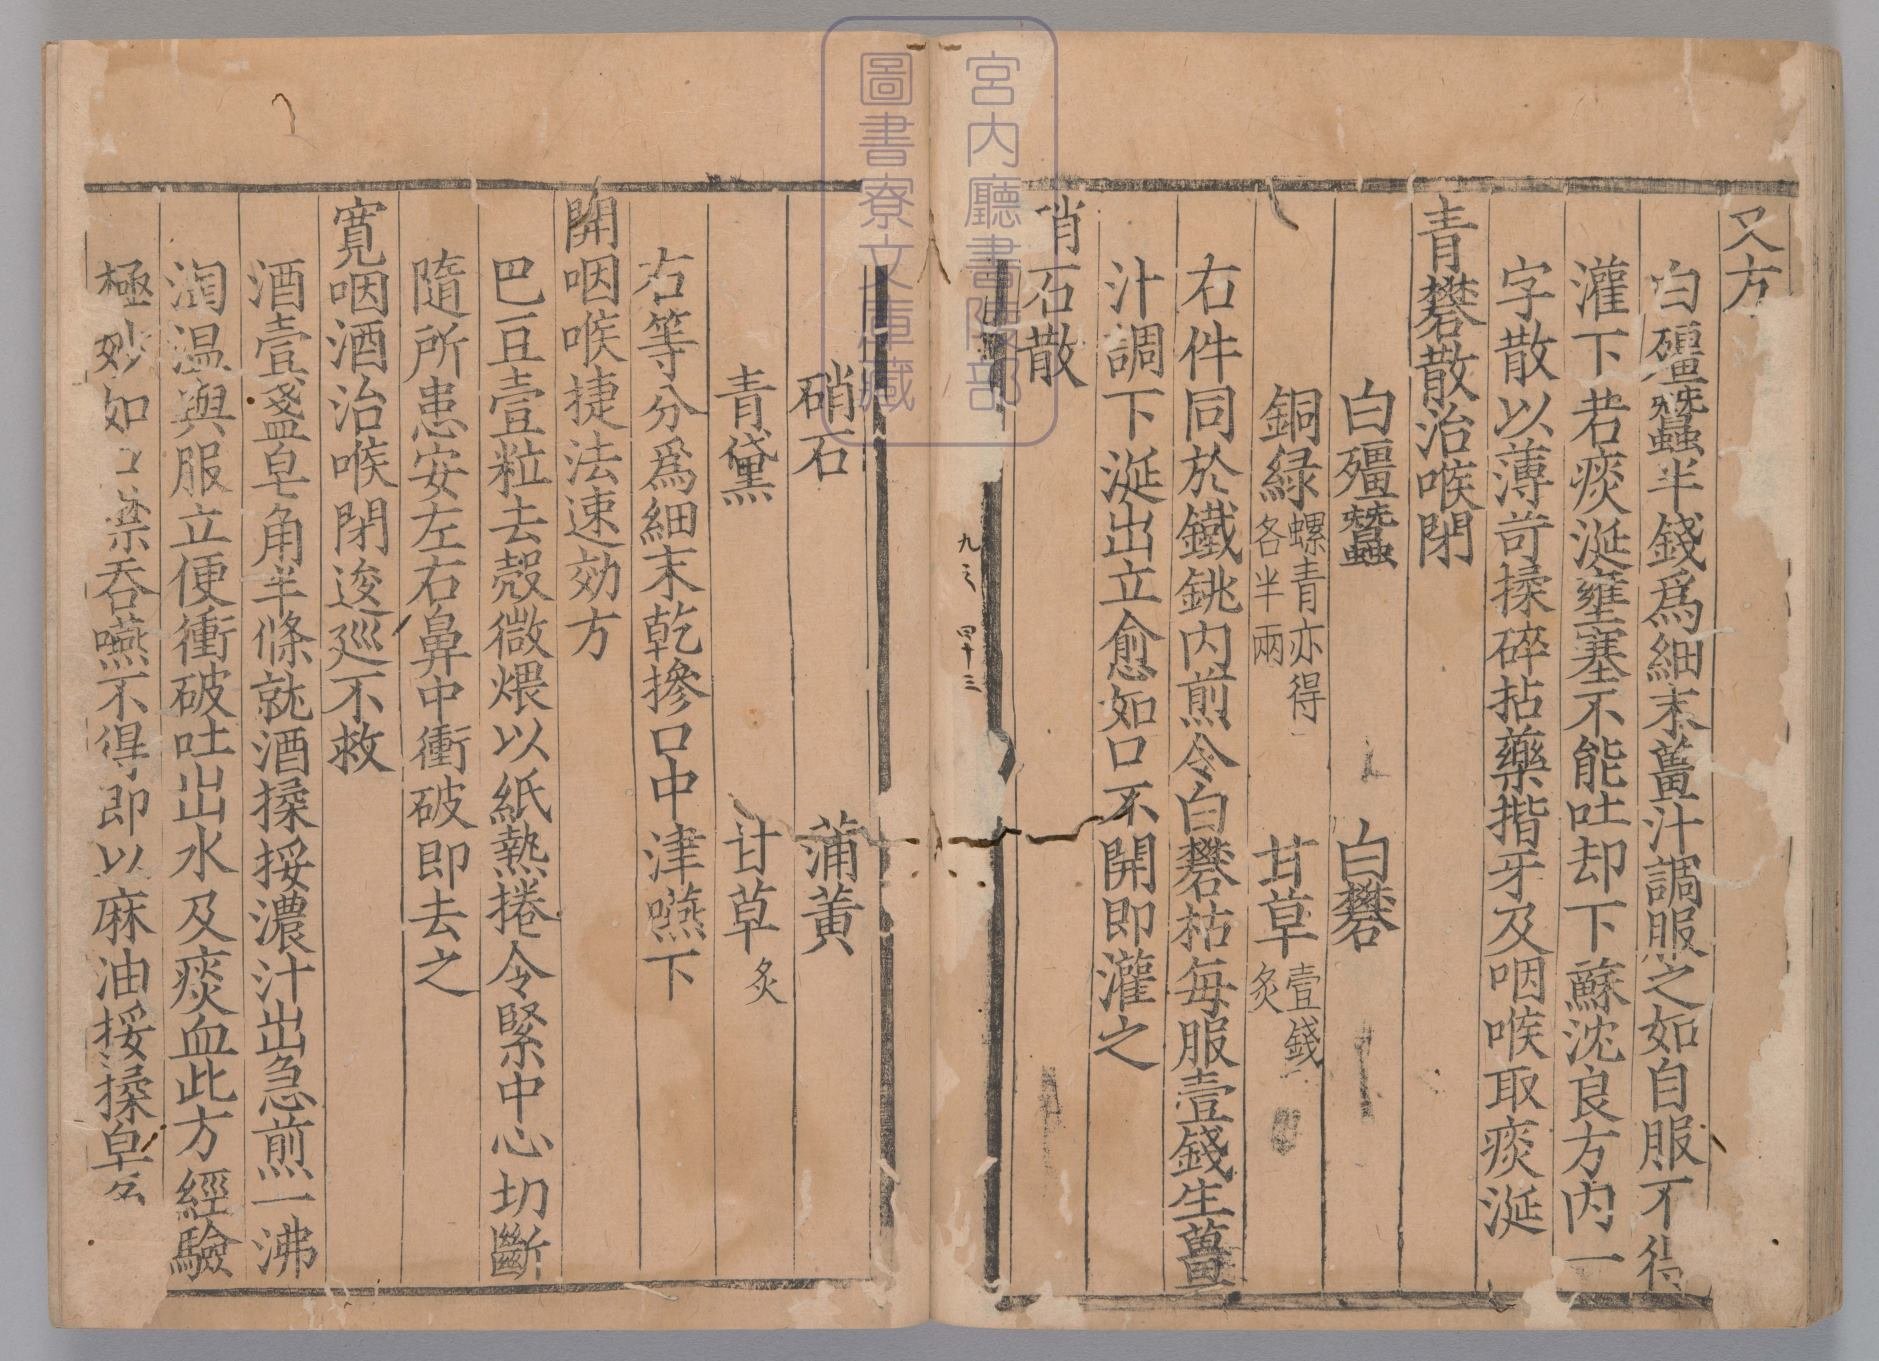 又方
白殭蠶半錢爲細末薑汁調服之如自服不得
灌下若痰涎壅塞不能吐却下蘇沈良方内一
字散以薄苛揉碎拈藥揩牙及咽喉取痰涎
青礬散治喉閉
白殭蠶 白礬
銅緑 螺青亦得各半兩 甘草 壹錢炙
右件同於鐵銚内煎令白礬枯毎服壹錢生薑
汁調下涎出立愈如口不開即灌之
硝石散
硝石 蒲黄
青黛 甘草 炙
右等分爲細末乾摻口中津嚥下
開咽喉捷法速効方
巴豆壹粒去殻微煨以紙熱捲令緊中心切斷
隨所患安左右鼻中衝破即去之
寛咽酒治喉閉逡巡不救
酒壹盞皂角半條就酒揉挼濃汁出急煎一沸
淘温與服立便衝破吐出水及痰血此方經驗
極妙如口禁吞嚥不得即以麻油挼揉皂
九之 四十三
宮内廳書陵部
圖書寮文庫藏